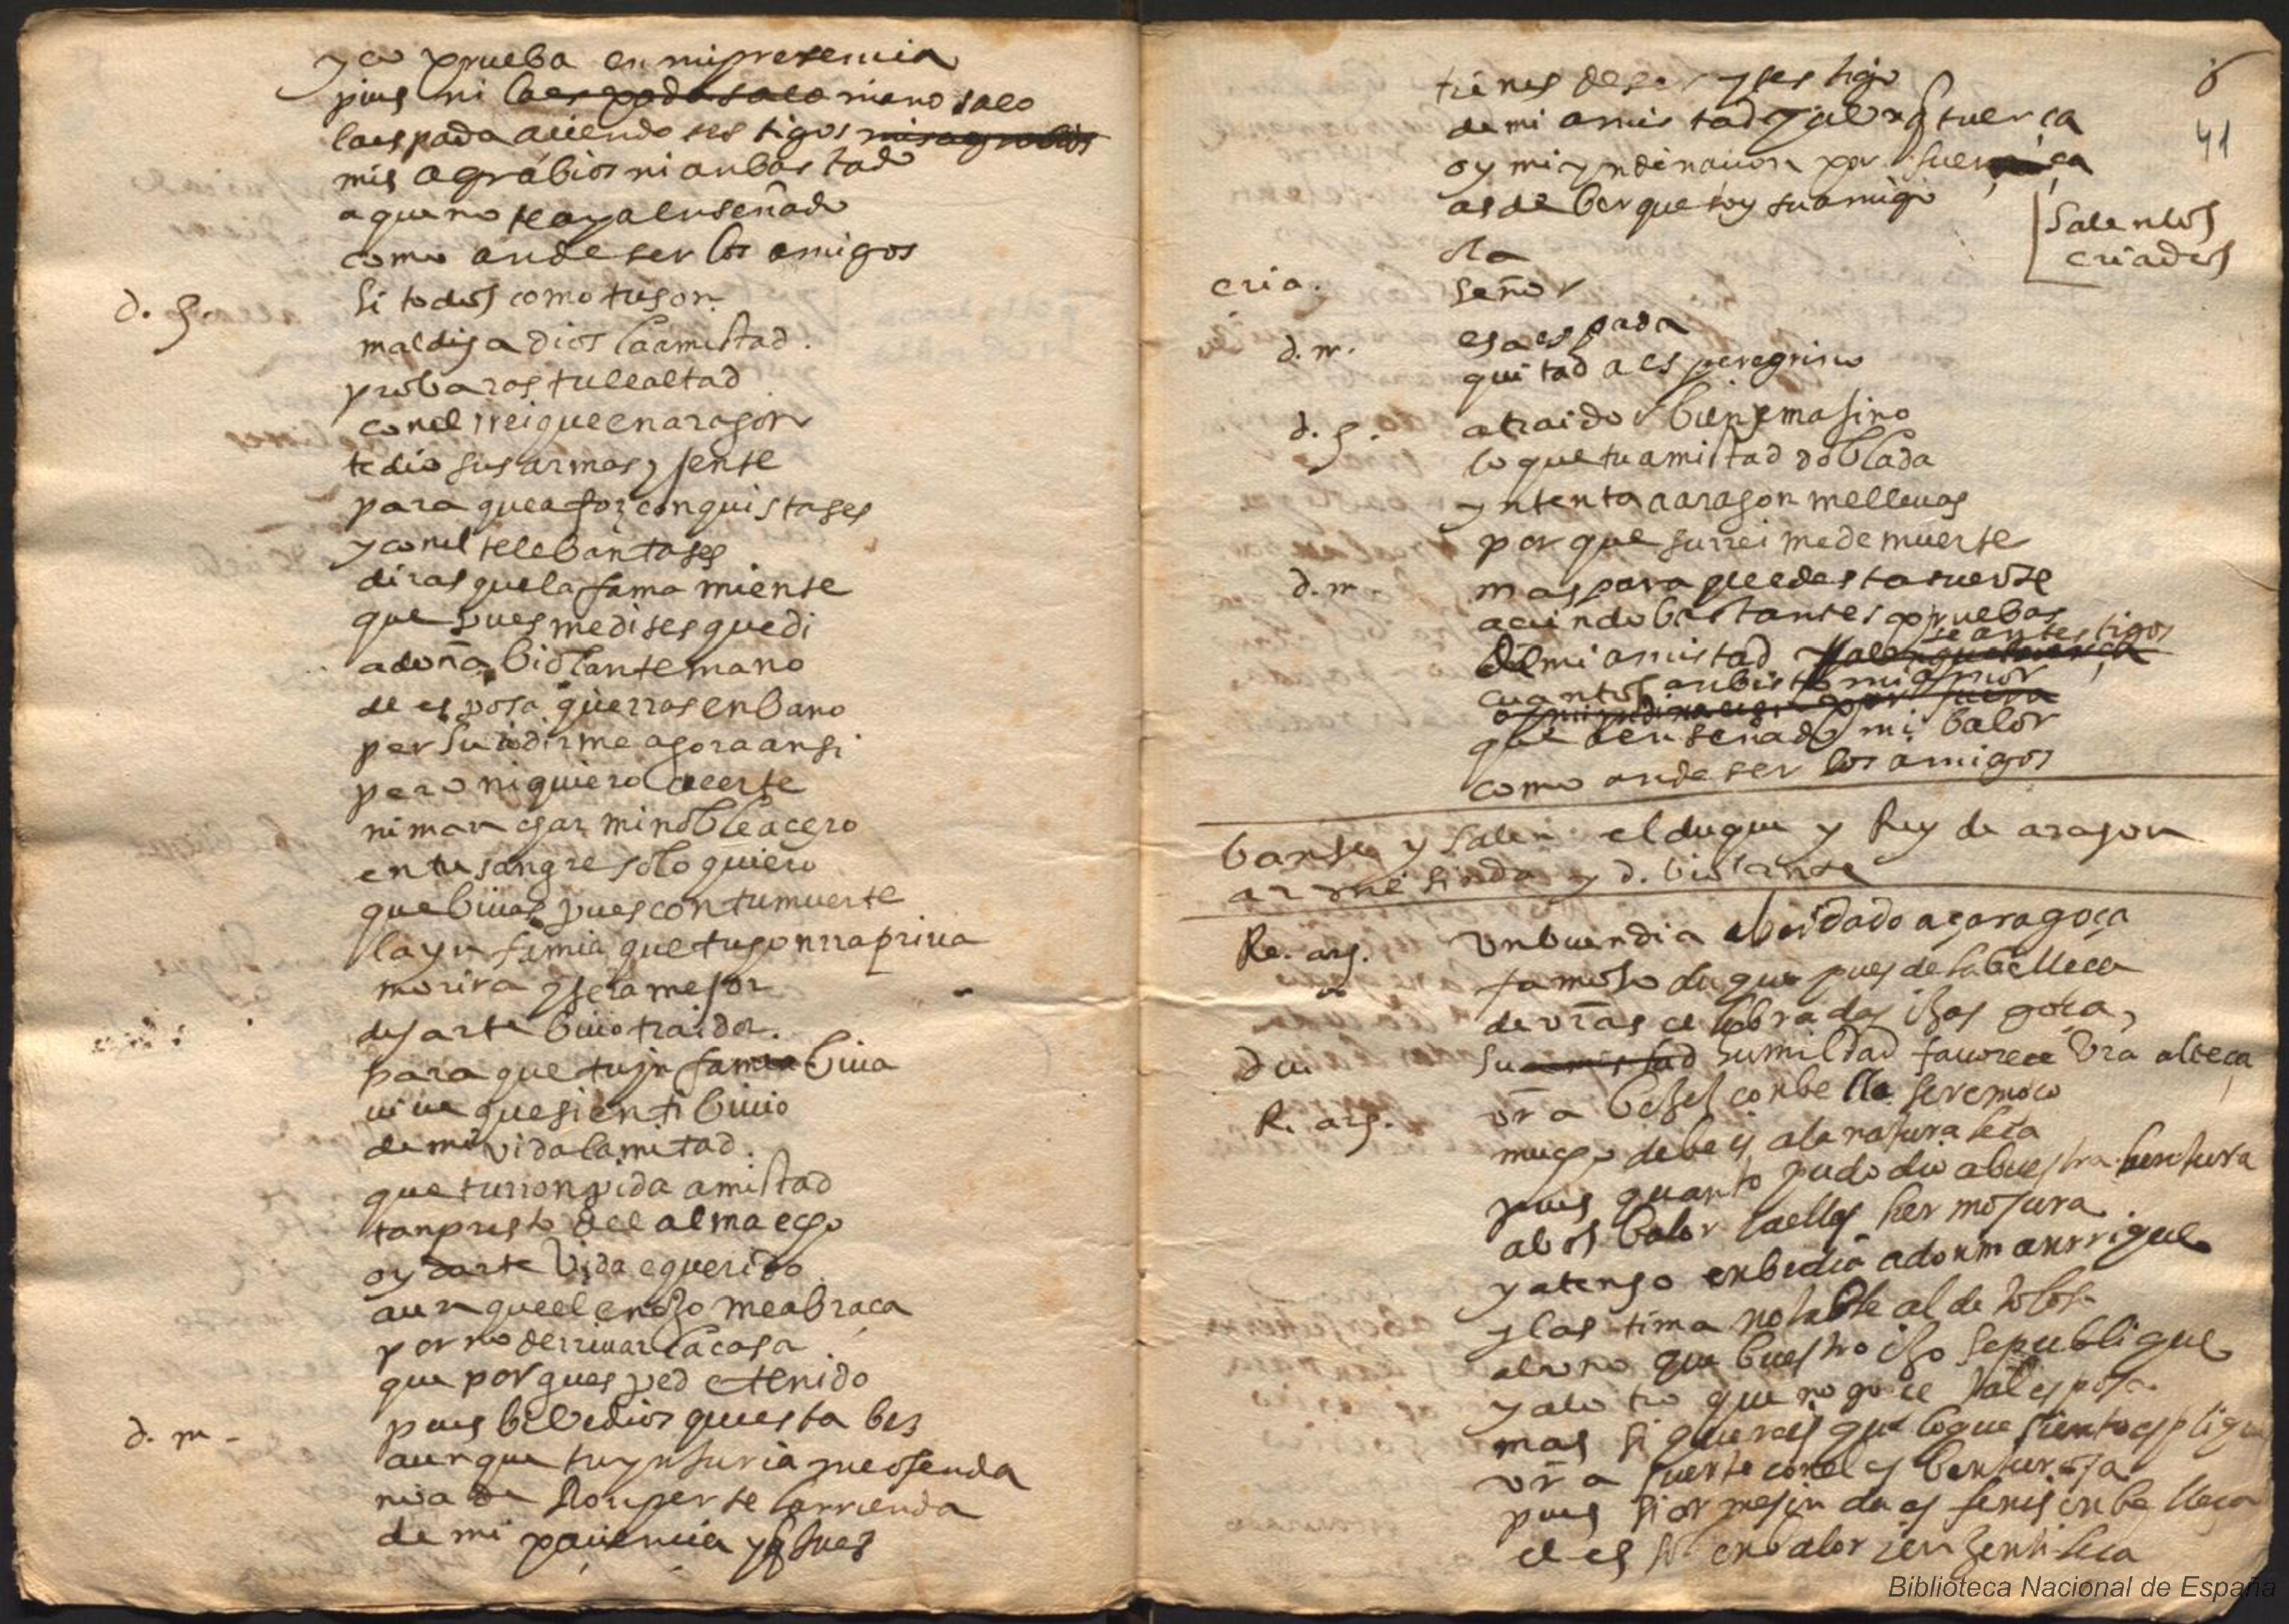 y es prueba en mi presencia
pues ni la espada saco mi mano saco
la espada aciendo testigos mis agrabios
mis agrabios ni an bastado
a que no te aya enseñado
como an de ser los amigos
d. g. si todos como tu son
maldiga dios la amistad.
probaras tu lealtad
con el rrei que en aragon
te dio sus armas y jente
para que a foz conquistases
y con el te lebantases
diras que la fama miente
que pues me dises que di
a doña biolante mano
de esposa querras en bano
persuadirme agora ansi
pero ni quiero creerte
ni manchar mi noble acero
en tu sangre solo quiero
que bibas pues con tu muerte
la ynfamia que tu gonrra priva
morira y sera mejor
dejarte bivo traidor.
para que tu ynfamia biva
vive que si en ti bivio
de mi vida la mitad.
que tu rronpida amistad
tan presto del alma echo
oy darte vida e querido
aunque el enojo me abraça
por no derrivar la casa
que por guesped e tenido
d. m. pues bibe dios que esta bez
aunque tu ynjuria me ofenda
no a de ronperse la rrienda
de mi paciencia y jues
6
41
tienes de ser y testigo
de mi amistad y aunq tuerça
oy mi yndinacion por fuerça
as de ber que soy su amigo
ola
salen los
criados
cria. señor
d. m. esa espada
quitad a es peregrino
d. g. a traidor bien jmasino
lo que tu amistad doblada
yntenta a aragon me llevas
por que su rrei me de muerte
d. m. mas para que desta suerte
aciendo bastantes pruebas
de mi amistad sean testigos
cuantos an bisto mi amor
que a enseñado mi balor
como an de ser los amigos
banse y salen el duque y Rey de aragon
armesinda y d. biolante
Re. arg. un buen dia e oi dado a çaragoça
famoso duque pues de la belleça
de vras celebradas ijas goça,
du. su amistad humildad favorece vra alteça
R. arg.
mucho debeis a la naturaleça
pues quanto pudo dio a buestra bentura
a bos balor y a ellas hermosura.
ya tengo enbidia a don manrrique
y lastima notable al de tolosa
al uno que buestro ijo se publique
y al otro que no goce tal esposa.
mas si quereis que lo que siento esplique
vra suerte con el es benturosa
pues si armesinda es fenis en belleça
el es sol en balor y en jentileça
Biblioteca Nacional de España